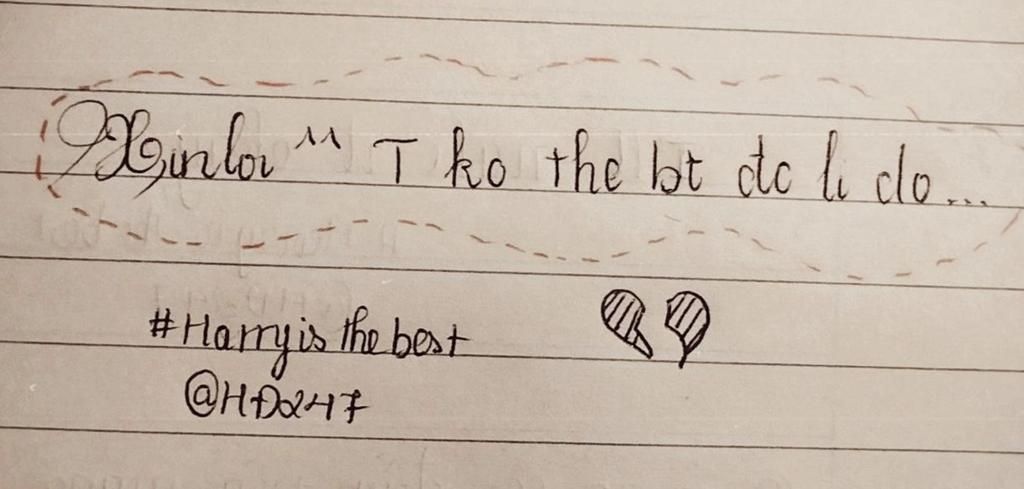 Xinloi ^^ T ko the bt dc li do...
#Harry is the best
@HD247